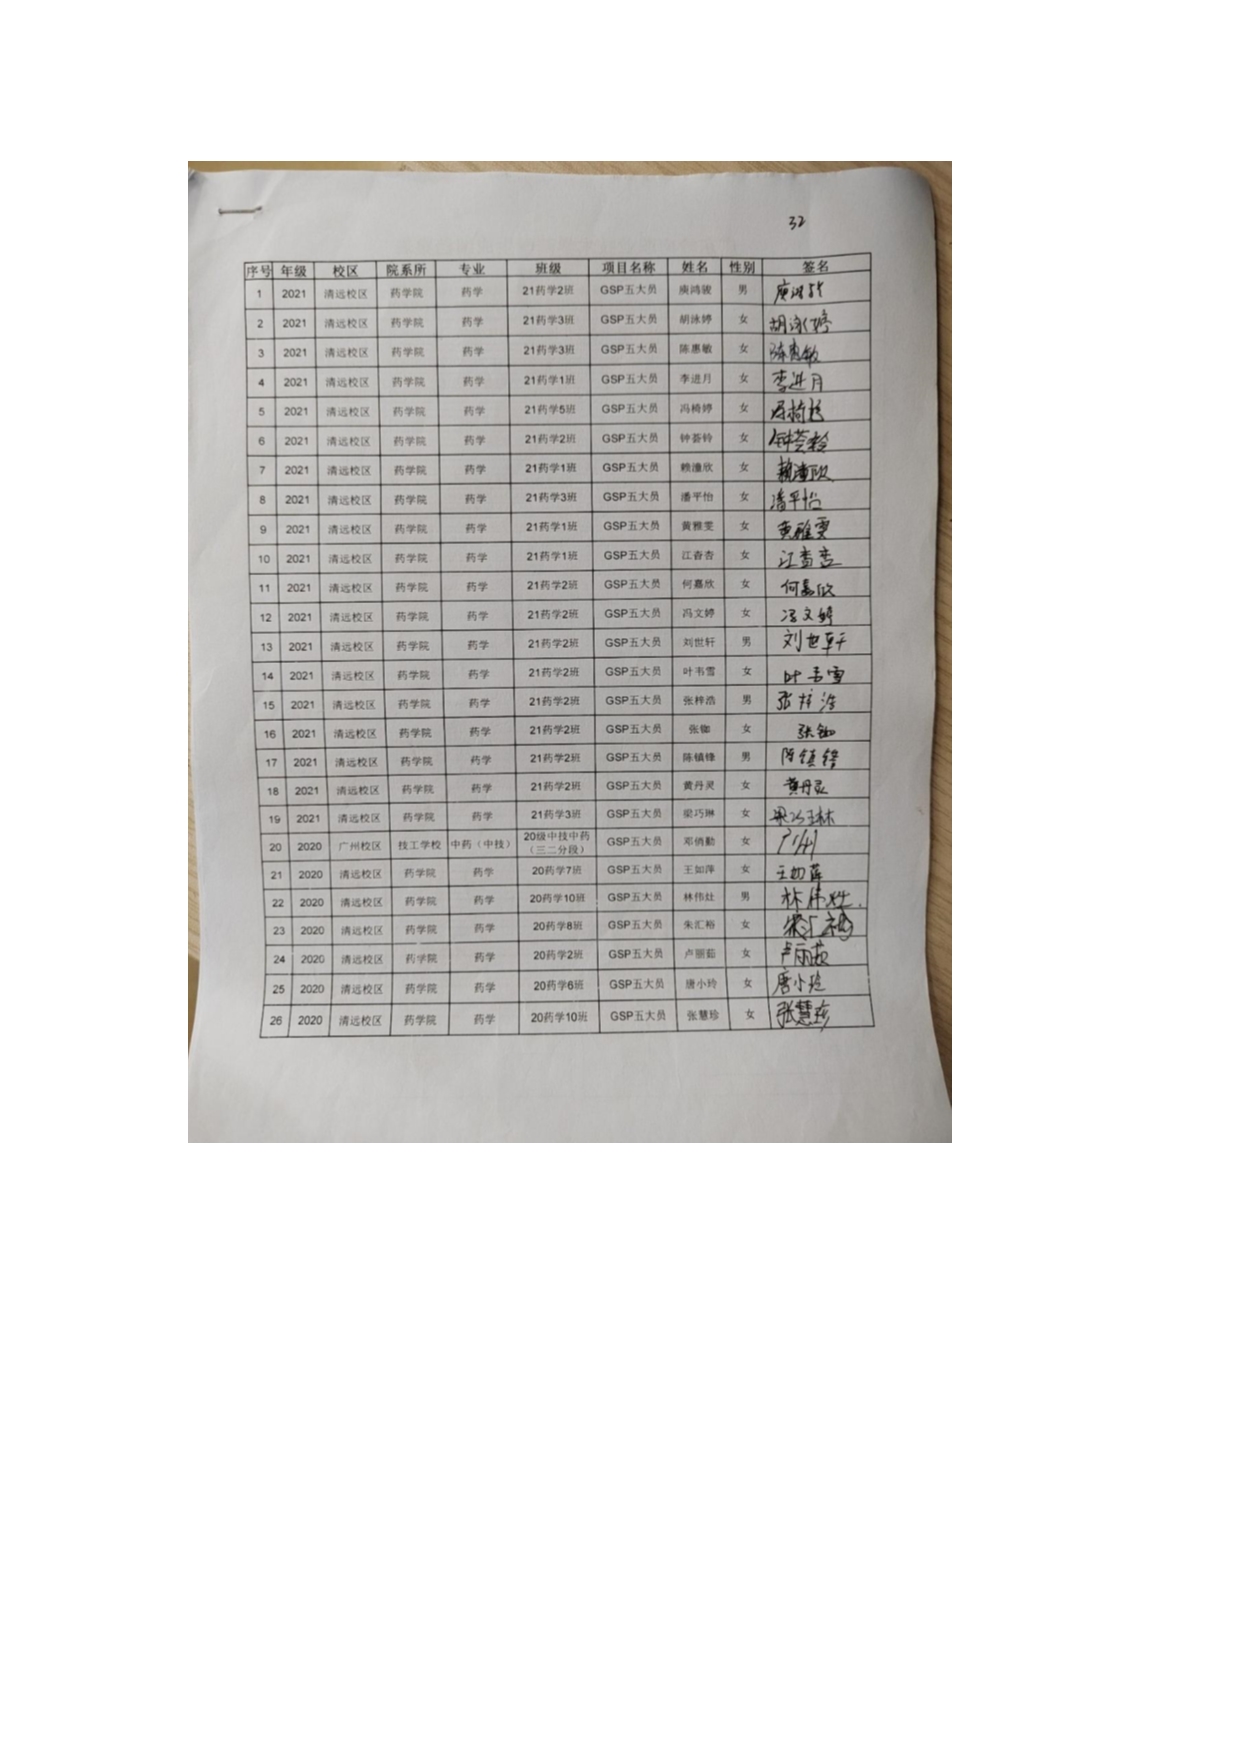 32
序号 年级 校区 院系所 专业 班级 项目名称 姓名 性别 签名
1 2021 清远校区 药学院 药学 21药学2班 GSP五大员 庾鸿骏 男 庾鸿骏
2 2021 清远校区 药学院 药学 21药学3班 GSP五大员 胡泳婷 女 胡泳婷
3 2021 清远校区 药学院 药学 21药学3班 GSP五大员 陈惠敏 女 陈惠敏
4 2021 清远校区 药学院 药学 21药学1班 GSP五大员 李进月 女 李进月
5 2021 清远校区 药学院 药学 21药学5班 GSP五大员 冯椅婷 女
6 2021 清远校区 药学院 药学 21药学2班 GSP五大员 钟荟铃 女 钟荟铃
7 2021 清远校区 药学院 药学 21药学1班 GSP五大员 赖潼欣 女 赖潼欣
8 2021 清远校区 药学院 药学 21药学3班 GSP五大员 潘平怡 女 潘平怡
9 2021 清远校区 药学院 药学 21药学1班 GSP五大员 黄雅雯 女 黄雅雯
10 2021 清远校区 药学院 药学 21药学1班 GSP五大员 江杳杏 女
11 2021 清远校区 药学院 药学 21药学2班 GSP五大员 何嘉欣 女 何嘉欣
12 2021 清远校区 药学院 药学 21药学2班 GSP五大员 冯文婷 女 冯文婷
13 2021 清远校区 药学院 药学 21药学2班 GSP五大员 刘世轩 男 刘世轩
14 2021 清远校区 药学院 药学 21药学2班 GSP五大员 叶韦雪 女 叶韦雪
15 2021 清远校区 药学院 药学 21药学2班 GSP五大员 张梓浩 男 张梓浩
16 2021 清远校区 药学院 药学 21药学2班 GSP五大员 张铷 女 张铷
17 2021 清远校区 药学院 药学 21药学2班 GSP五大员 陈镇锋 男 陈镇锋
18 2021 清远校区 药学院 药学 21药学2班 GSP五大员 黄丹灵 女 黄丹灵
19 2021 清远校区 药学院 药学 21药学3班 GSP五大员 梁巧琳 女 梁巧琳
20 2020 广州校区 技工学校 中药（中技） 20级中技中药（三二分段） GSP五大员 邓俏勤 女
21 2020 清远校区 药学院 药学 20药学7班 GSP五大员 王如萍 女 王如萍
22 2020 清远校区 药学院 药学 20药学10班 GSP五大员 林伟灶 男 林伟灶.
23 2020 清远校区 药学院 药学 20药学8班 GSP五大员 朱汇裕 女
24 2020 清远校区 药学院 药学 20药学2班 GSP五大员 卢丽茹 女 卢丽茹
25 2020 清远校区 药学院 药学 20药学6班 GSP五大员 唐小玲 女 唐小玲
26 2020 清远校区 药学院 药学 20药学10班 GSP五大员 张慧珍 女 张慧珍